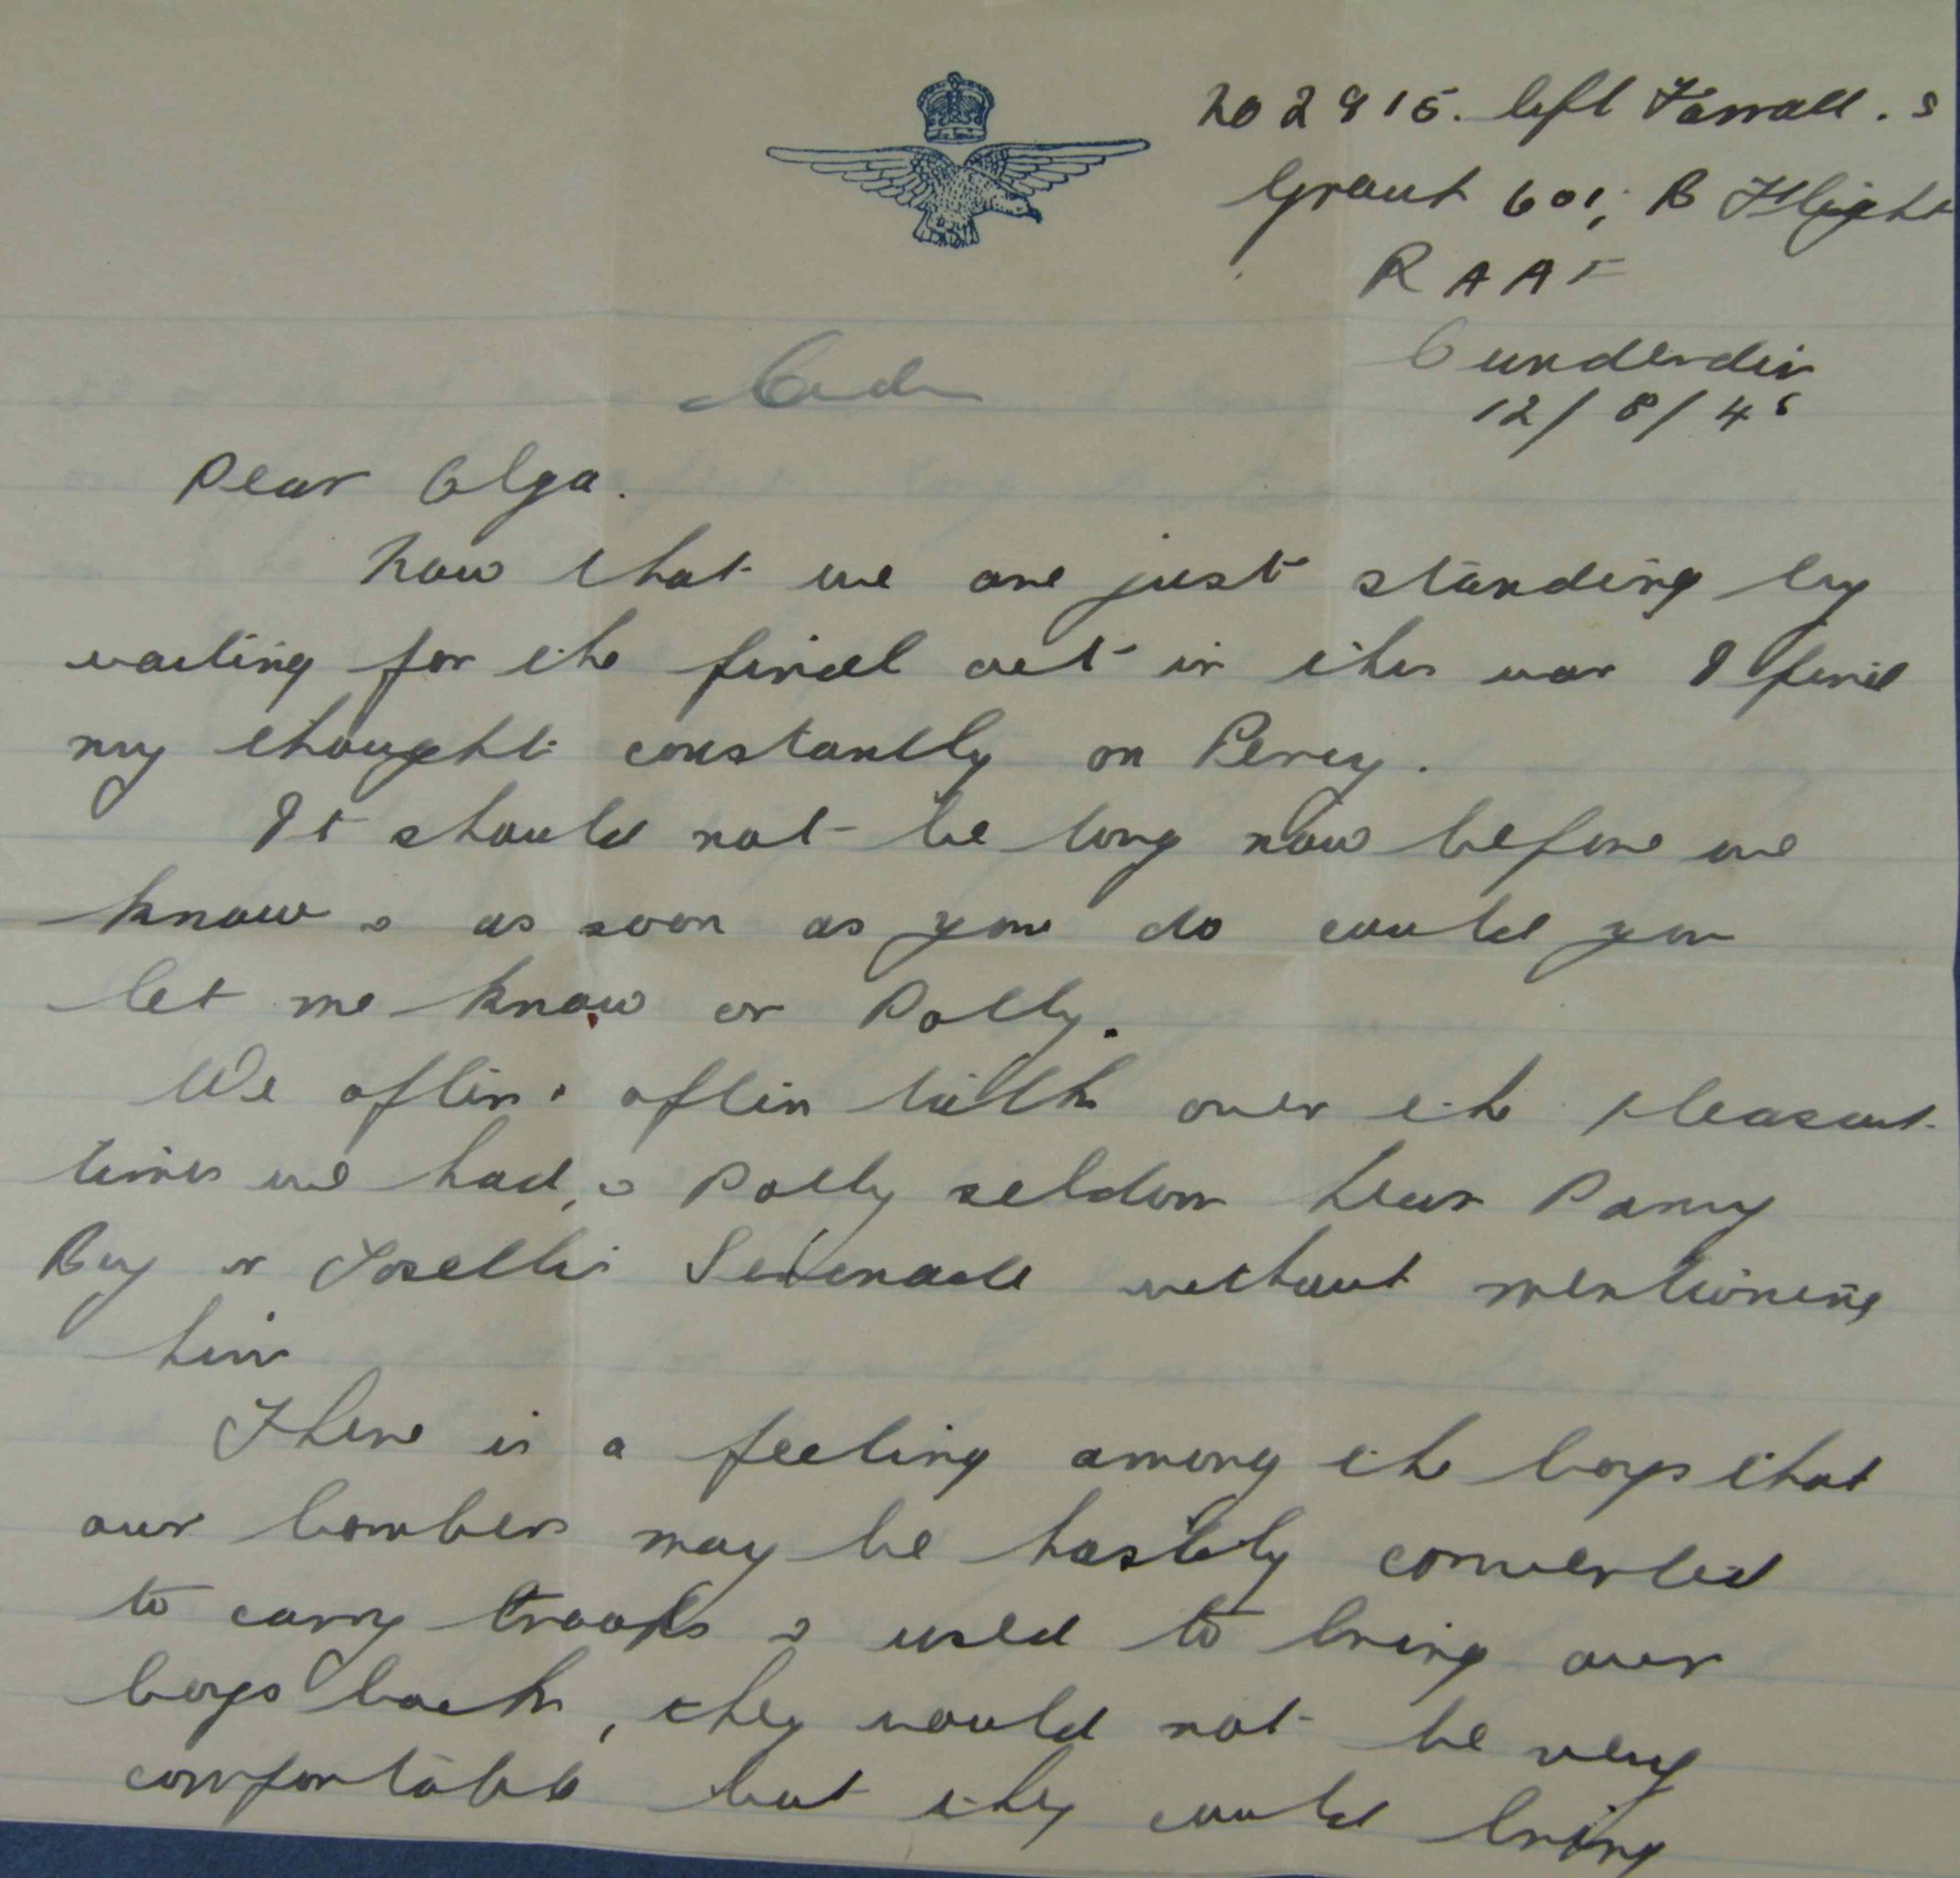 202915. Cpl Farrall. S
Grant 601; B Flight
RAAF
Cunderdin
12/8/45
Dear Olga.
Now that we are just standing by
waiting for the final act in this war I find
my thought constantly on Percy.
It should not be long now before we
know & as soon as you do could you
let me know or Polly.
We often & often talk over the pleasant
times we had, & Polly seldom hear Danny
Boy or Toselli's Serenade without mentioning
him
There is a feeling among the boys that
our bombers may be hastily converted
to carry troops & used to bring our
boys back, they would not be very
comfortable but they could bring